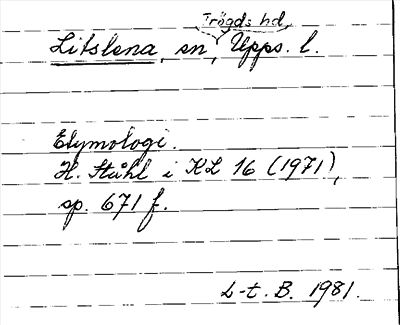 Trögds hd,
Litslena, sn, Upps. l.
Etymologi.
H. Ståhl i KL 16 (1971),
sp. 671 f.
L-t. B. 1981.